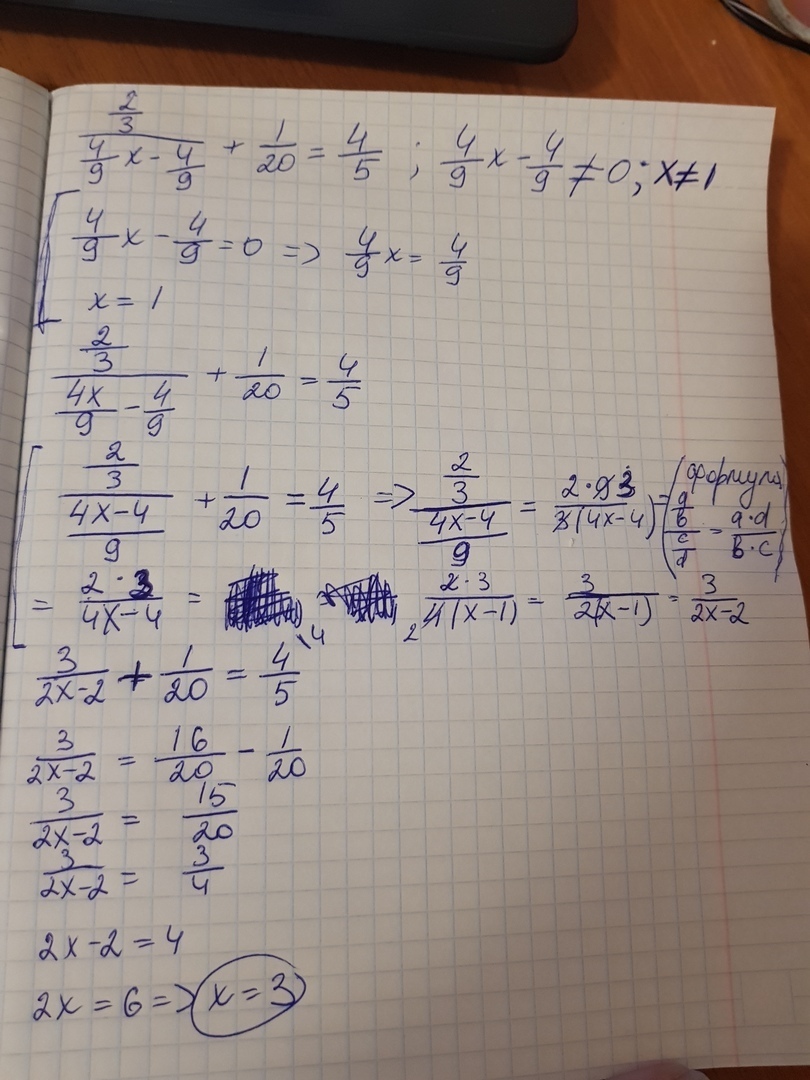 (2/3)/(4/9 x - 4/9) + 1/20 = 4/5 ; 4/9 x - 4/9 ≠ 0; x ≠ 1
4/9 x - 4/9 = 0 => 4/9 x = 4/9
x = 1
(2/3)/(4x/9 - 4/9) + 1/20 = 4/5
(2/3)/((4x-4)/9) + 1/20 = 4/5 => (2/3)/((4x-4)/9) = (2·9 3)/(3(4x-4)) = (формула (a/b)/(c/d) = (a·d)/(b·c))
= (2·3)/(4x-4) = (2·3)/(2 4(x-1)) = 3/(2(x-1)) = 3/(2x-2)
3/(2x-2) + 1/20 = 4/5 \4
3/(2x-2) = 16/20 - 1/20
3/(2x-2) = 15/20
3/(2x-2) = 3/4
2x-2 = 4
2x = 6 => x = 3